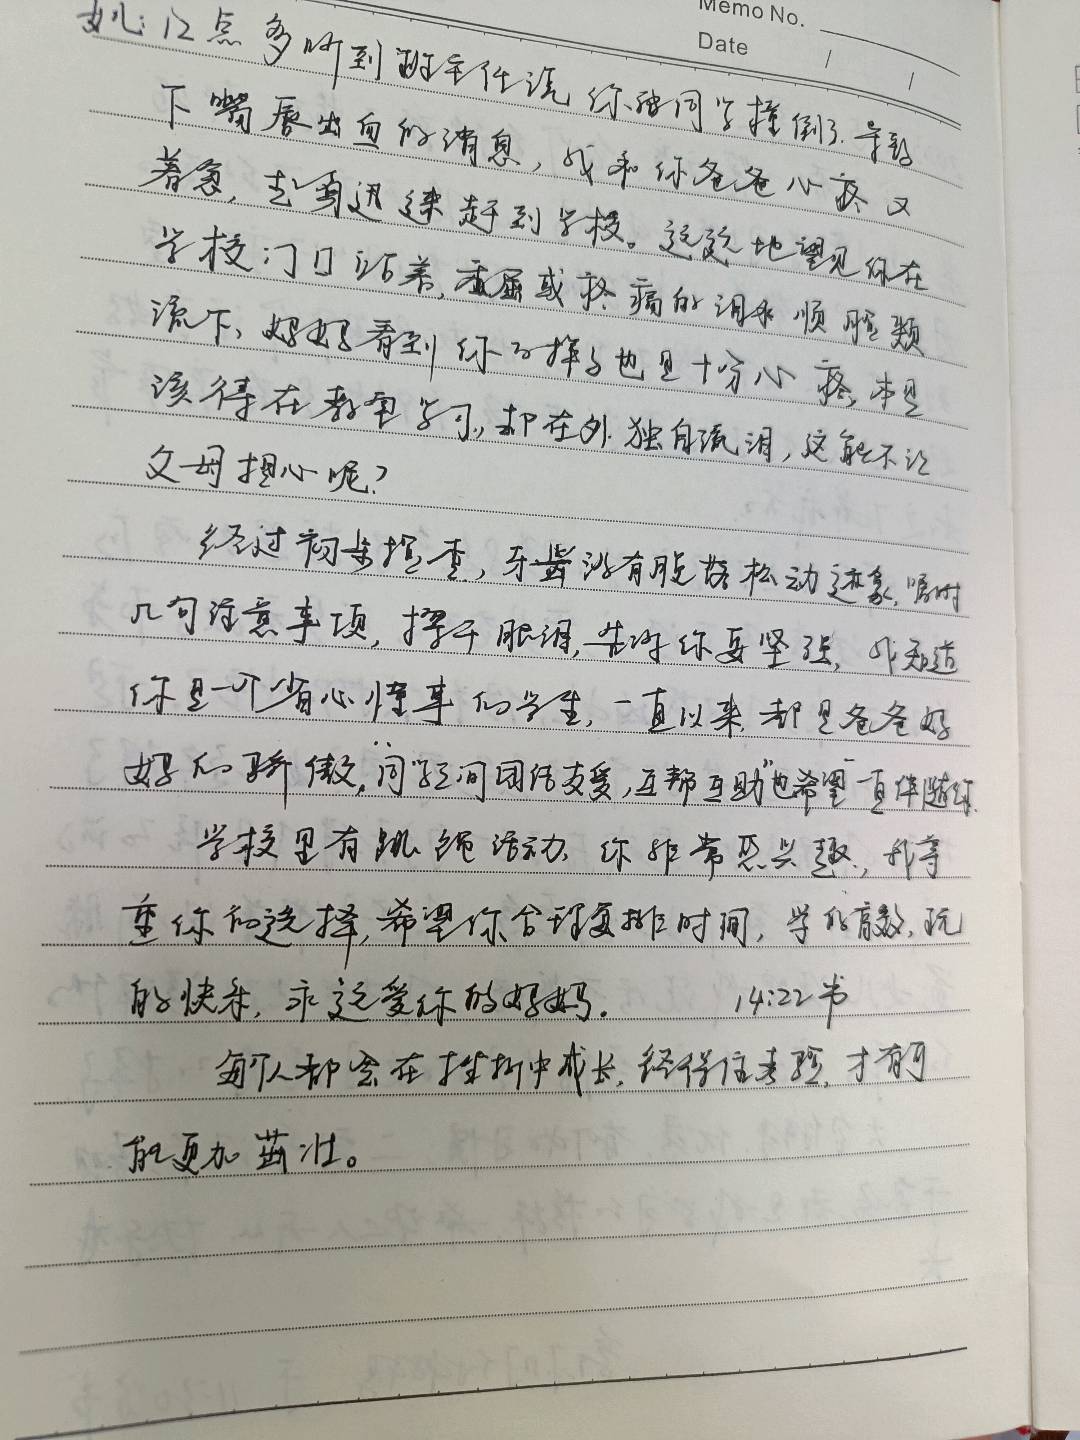 Memo No.
Date
女儿：12点多听到班主任说你被同学撞倒了.导致
下嘴唇出血的消息，我和你爸爸心疼又
着急，赶到学校。远远地望见你在
学校门口站着，委屈或疼痛的泪水顺脸颊
流下，妈妈看到你的样子也是十分心疼，本是
该待在教室学习，却在外独自流泪，这能不让
父母担心呢？
经过初步检查，牙齿没有脱落松动迹象，嘱咐
几句注意事项，擦干眼泪，告诉你要坚强，我知道
你是一个省心懂事的学生，一直以来都是爸爸妈
妈的骄傲，"同学之间团结友爱，互帮互助"也希望一直伴随你.
学校里有跳绳活动，你非常感兴趣，我尊
重你的选择，希望你合理安排时间，学的高效，玩
的快乐，永远爱你的妈妈. 14:22书
每个人都会在挫折中成长，经得住考验，才有可
能更加茁壮。